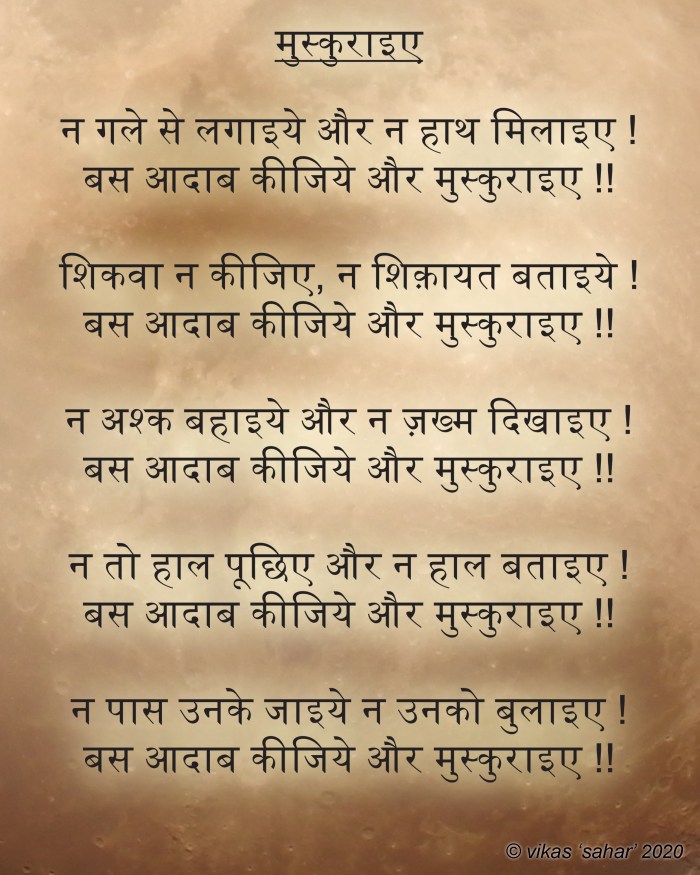 मुस्कुराइए
न गले से लगाइये और न हाथ मिलाइए !
बस आदाब कीजिये और मुस्कुराइए !!
शिकवा न कीजिए, न शिक़ायत बताइये !
बस आदाब कीजिये और मुस्कुराइए !!
न अश्क बहाइये और न ज़ख्म दिखाइए !
बस आदाब कीजिये और मुस्कुराइए !!
न तो हाल पूछिए और न हाल बताइए !
बस आदाब कीजिये और मुस्कुराइए !!
न पास उनके जाइये न उनको बुलाइए !
बस आदाब कीजिये और मुस्कुराइए !!
© vikas ‘sahar’ 2020